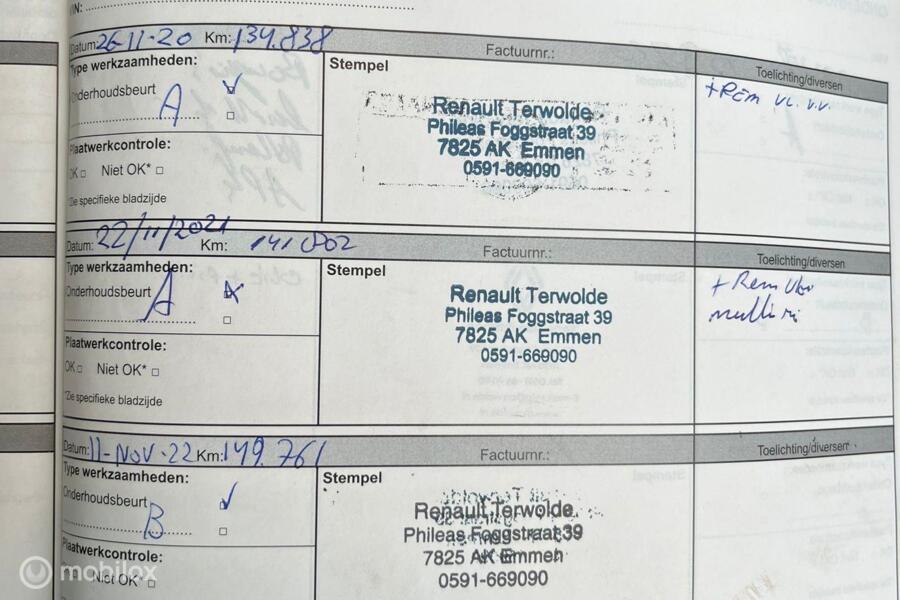 VIN:
Datum: 26-11-20 Km: 134.838 Factuurnr.: Toelichting/diversen
Type werkzaamheden: Stempel
Onderhoudsbeurt A + REM VL. V.V.
Renault Terwolde
Phileas Foggstraat 39
7825 AK Emmen
0591-669090
Plaatwerkcontrole:
OK Niet OK*
*Zie specifieke bladzijde
Datum: 22/11/2021 Km: 141 002 Factuurnr.: Toelichting/diversen
Type werkzaamheden: Stempel
Onderhoudsbeurt A + Rem
Renault Terwolde
Phileas Foggstraat 39
7825 AK Emmen
0591-669090
Plaatwerkcontrole:
OK Niet OK*
*Zie specifieke bladzijde
Datum: 11-NOV-22 Km: 149.761 Factuurnr.: Toelichting/diversen
Type werkzaamheden: Stempel
Onderhoudsbeurt B
Renault Terwolde
Phileas Foggstraat 39
7825 AK Emmen
0591-669090
Plaatwerkcontrole:
Niet OK*
mobilox